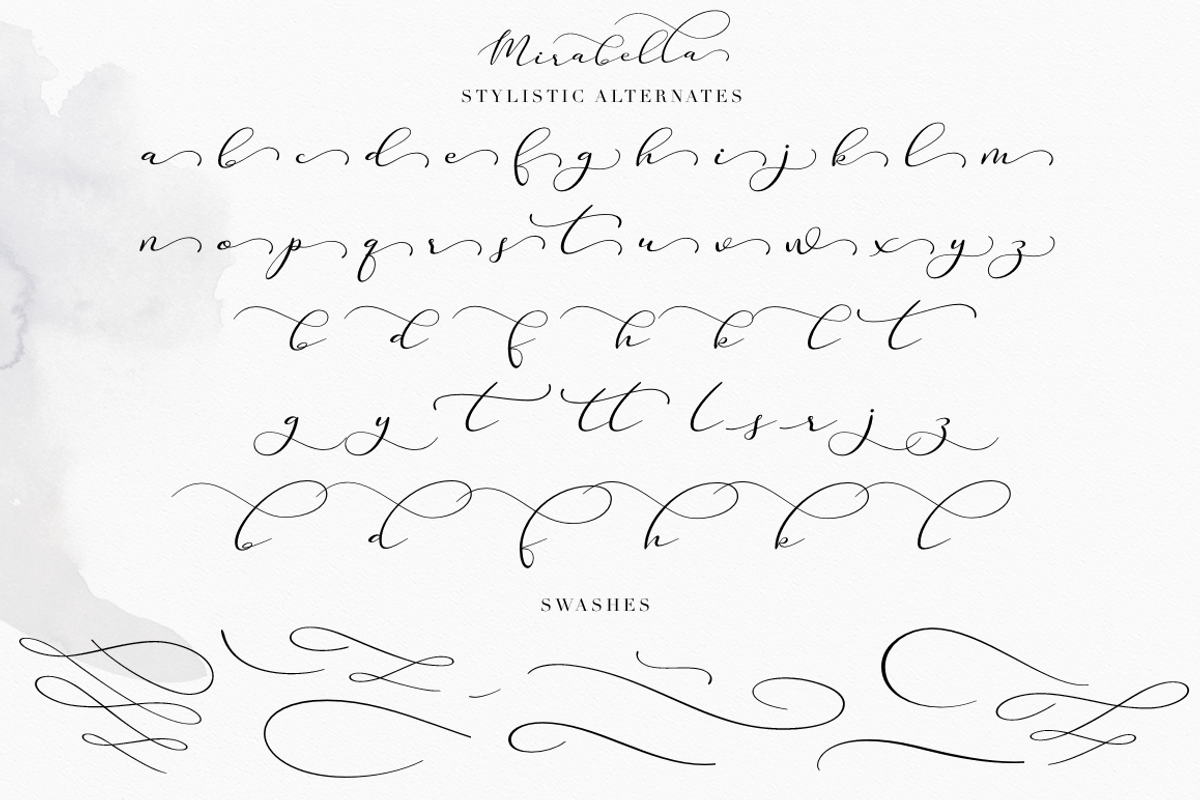 Mirabella
STYLISTIC ALTERNATES
a b c d e f g h i j k l m
n o p q r s t u v w x y z
b d f h k l t
g y t tt l s r j z
b d f h k l
SWASHES